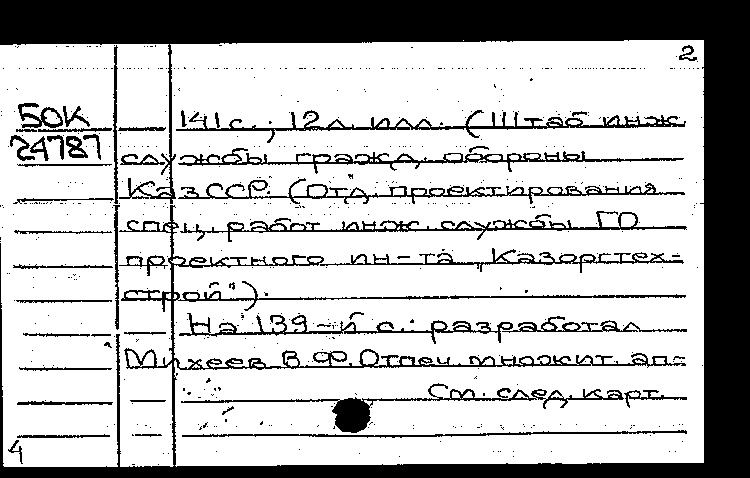 2
БОК 141 с.; 12 л. илл. (Штаб инж.
24787 службы гражд. обороны
КазССР. (Отд. проектирования
спец. работ инж. службы ГО
проектного ин-та „Казоргтех-
строй").
На 139-й с.: разработал
Михеев В.Ф. Отпеч. множит. ап-
См. след. карт.
4